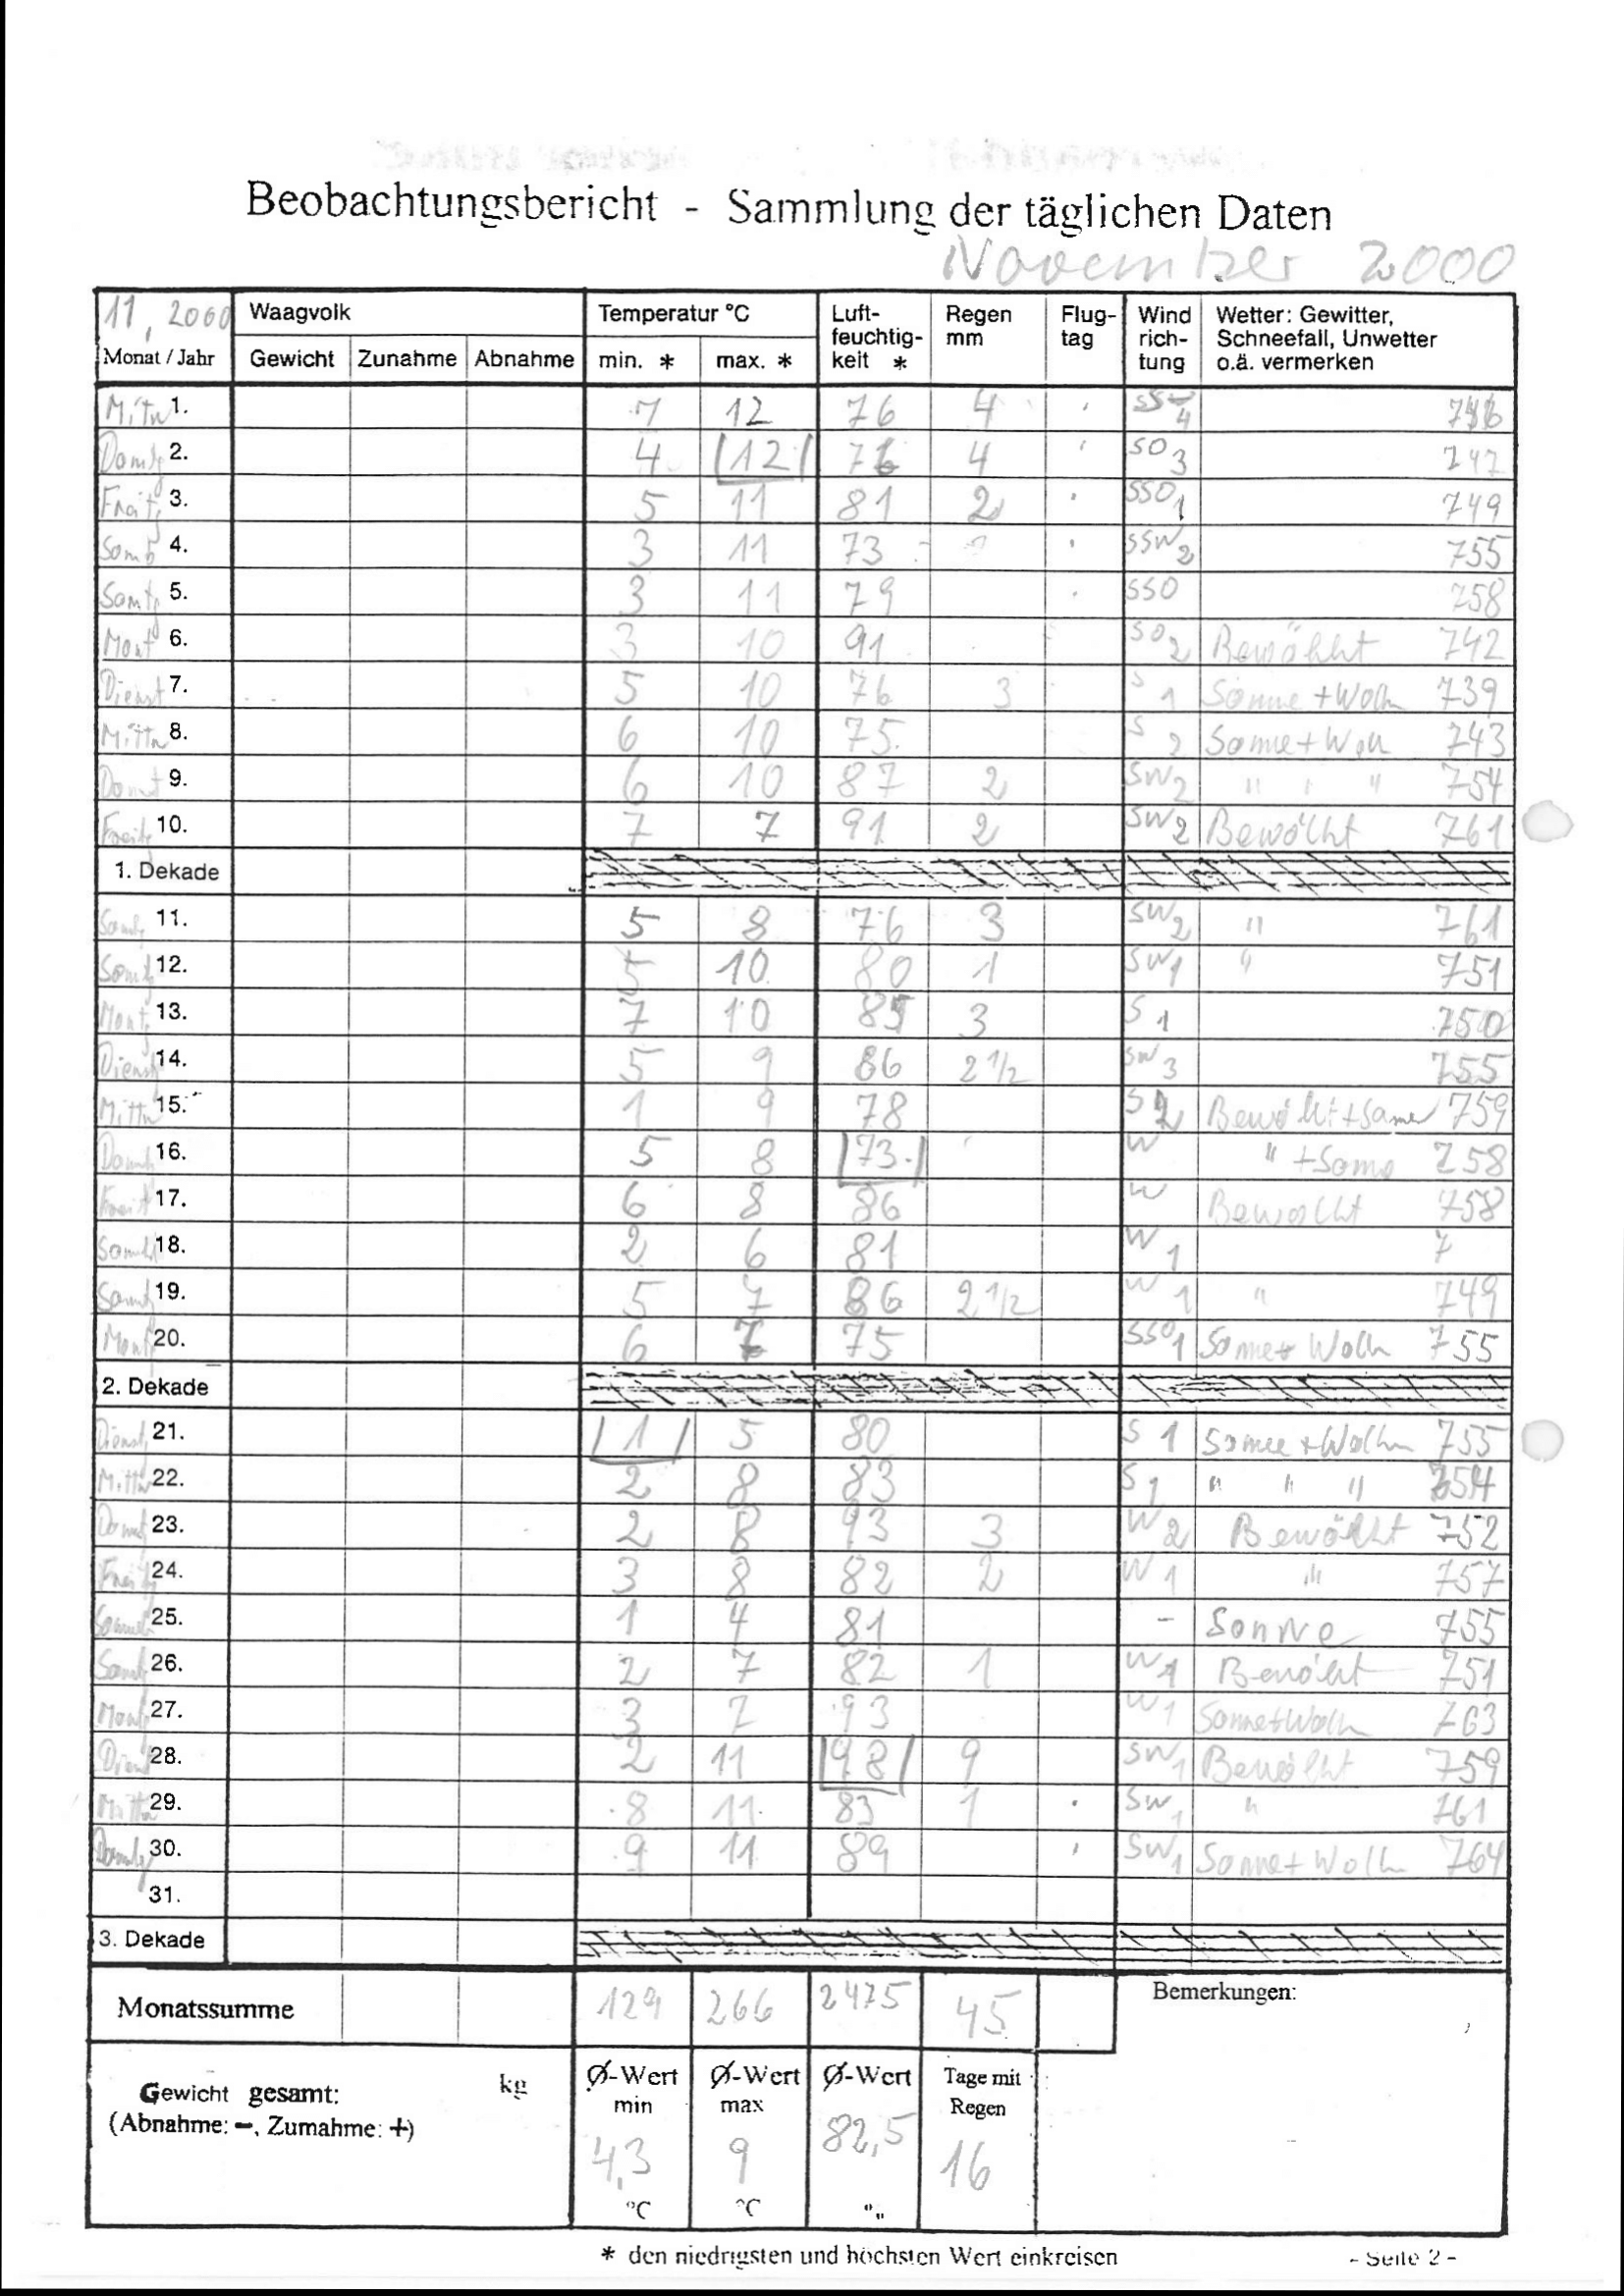 Beobachtungsbericht - Sammlung der täglichen Daten
November 2000
11, 2000 Waagvolk Temperatur °C Luft-feuchtig-keit * Regen mm Flug-tag Wind rich-tung Wetter: Gewitter, Schneefall, Unwetter o.ä. vermerken
Monat / Jahr Gewicht Zunahme Abnahme min. * max. *
Mittw 1. 7 12 76 4 4
2. 4 12 4 SO 3 747
Freit 3. 5 11 81 2 SSO 1 749
4. 3 11 73 SSW 2 755
5. 3 11 79 SSO 758
Mont 6. 3 10 91 SO 2 Bewölkt 742
Dienst 7. 5 10 76 3 S 1 Sonne + Wolk 739
Mittw 8. 6 10 75 S 2 Sonne + Wolk 743
9. 6 10 87 2 SW 2 " " " 754
Freit 10. 7 7 91 2 SW 2 Bewölkt 761
1. Dekade
11. 5 8 76 3 SW 2 " 761
12. 5 10 80 1 SW 1 " 751
Mont 13. 7 10 85 3 S 1 750
Dienst 14. 5 9 86 2 1/2 SW 3 755
Mittw 15. 1 9 78 S 2 Bewölkt + Sonne 759
16. 5 8 73 W " + Sonne 758
Freit 17. 6 8 86 W Bewölkt 758
18. 2 6 81 W 1 7
19. 5 7 86 2 1/2 W 1 " 749
Mont 20. 6 7 75 SSO 1 Sonne + Wolk 755
2. Dekade
Dienst 21. 1 5 80 S 1 Sonne + Wolken 755
Mittw 22. 2 8 83 S 1 " " " 754
23. 2 8 93 3 W 2 Bewölkt 752
Freit 24. 3 8 82 2 W 1 " 757
25. 1 4 81 - Sonne 755
26. 2 7 82 1 W 1 Bewölkt 751
Mont 27. 3 7 93 W 1 Sonne + Wolk 763
28. 2 11 98 9 SW 1 Bewölkt 759
29. 8 11 83 1 SW 1 " 761
30. 9 11 89 SW 1 Sonne + Wolk 764
31.
3. Dekade
Monatssumme 129 266 2475 45 Bemerkungen:
Gewicht gesamt: kg Ø-Wert min Ø-Wert max Ø-Wert Tage mit Regen
(Abnahme: -, Zumahme: +)
4,3 9 82,5 16
°C °C
* den niedrigsten und höchsten Wert einkreisen - Seite 2 -